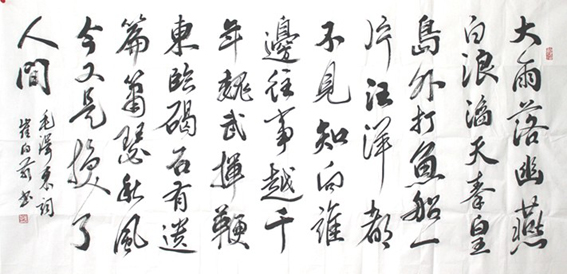 大雨落幽燕
白浪滔天秦皇
島外打魚船一
片汪洋都
不見知向誰
邊往事越千
年魏武揮鞭
東臨碣石有遺
篇蕭瑟秋風
今又是換了
人間
毛澤東詞